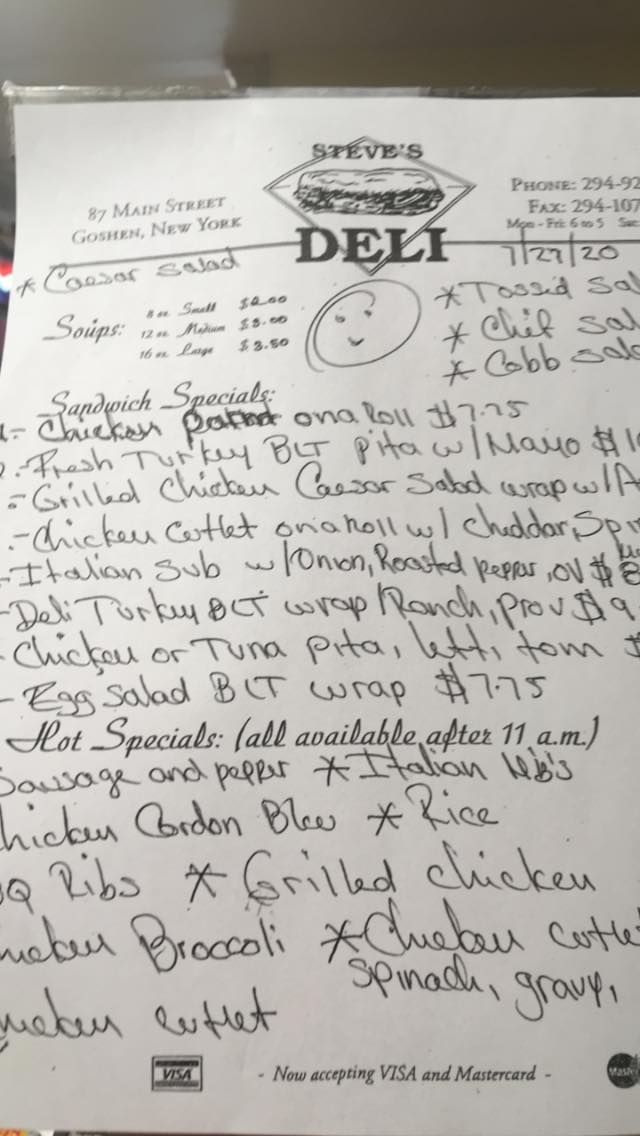 STEVE'S
DELI
87 MAIN STREET
GOSHEN, NEW YORK
PHONE: 294-92
FAX: 294-107
Mon - Fri: 6 to 5 Sat
7/27/20
* Caesar Salad
* Tossid Sal
* Chif sal
* Cobb sala
Soups: 8 oz. Small $2.00
12 oz. Medium $3.00
16 oz. Large $3.50
Sandwich Specials:
- Chicken on a Roll $7.75
- Fresh Turkey BLT pita w/Mayo $1
- Grilled Chicken Caesar Salad wrap w/A
- Chicken Cutlet on a roll w/ cheddar, Spi
- Italian Sub w/Onion, Roasted pepper, OV $8
- Deli Turkey BLT wrap/Ranch, prov $9
- Chicken or Tuna pita, lett, tom $
- Egg Salad BLT wrap $7.75
Hot Specials: (all available after 11 a.m.)
Sausage and pepper * Italian
hicken Cordon Bleu * Rice
Q Ribs * Grilled chicken
hicken Broccoli * Chicken cutle
spinach, gravy,
hicken cutlet
VISA
- Now accepting VISA and Mastercard -
Master